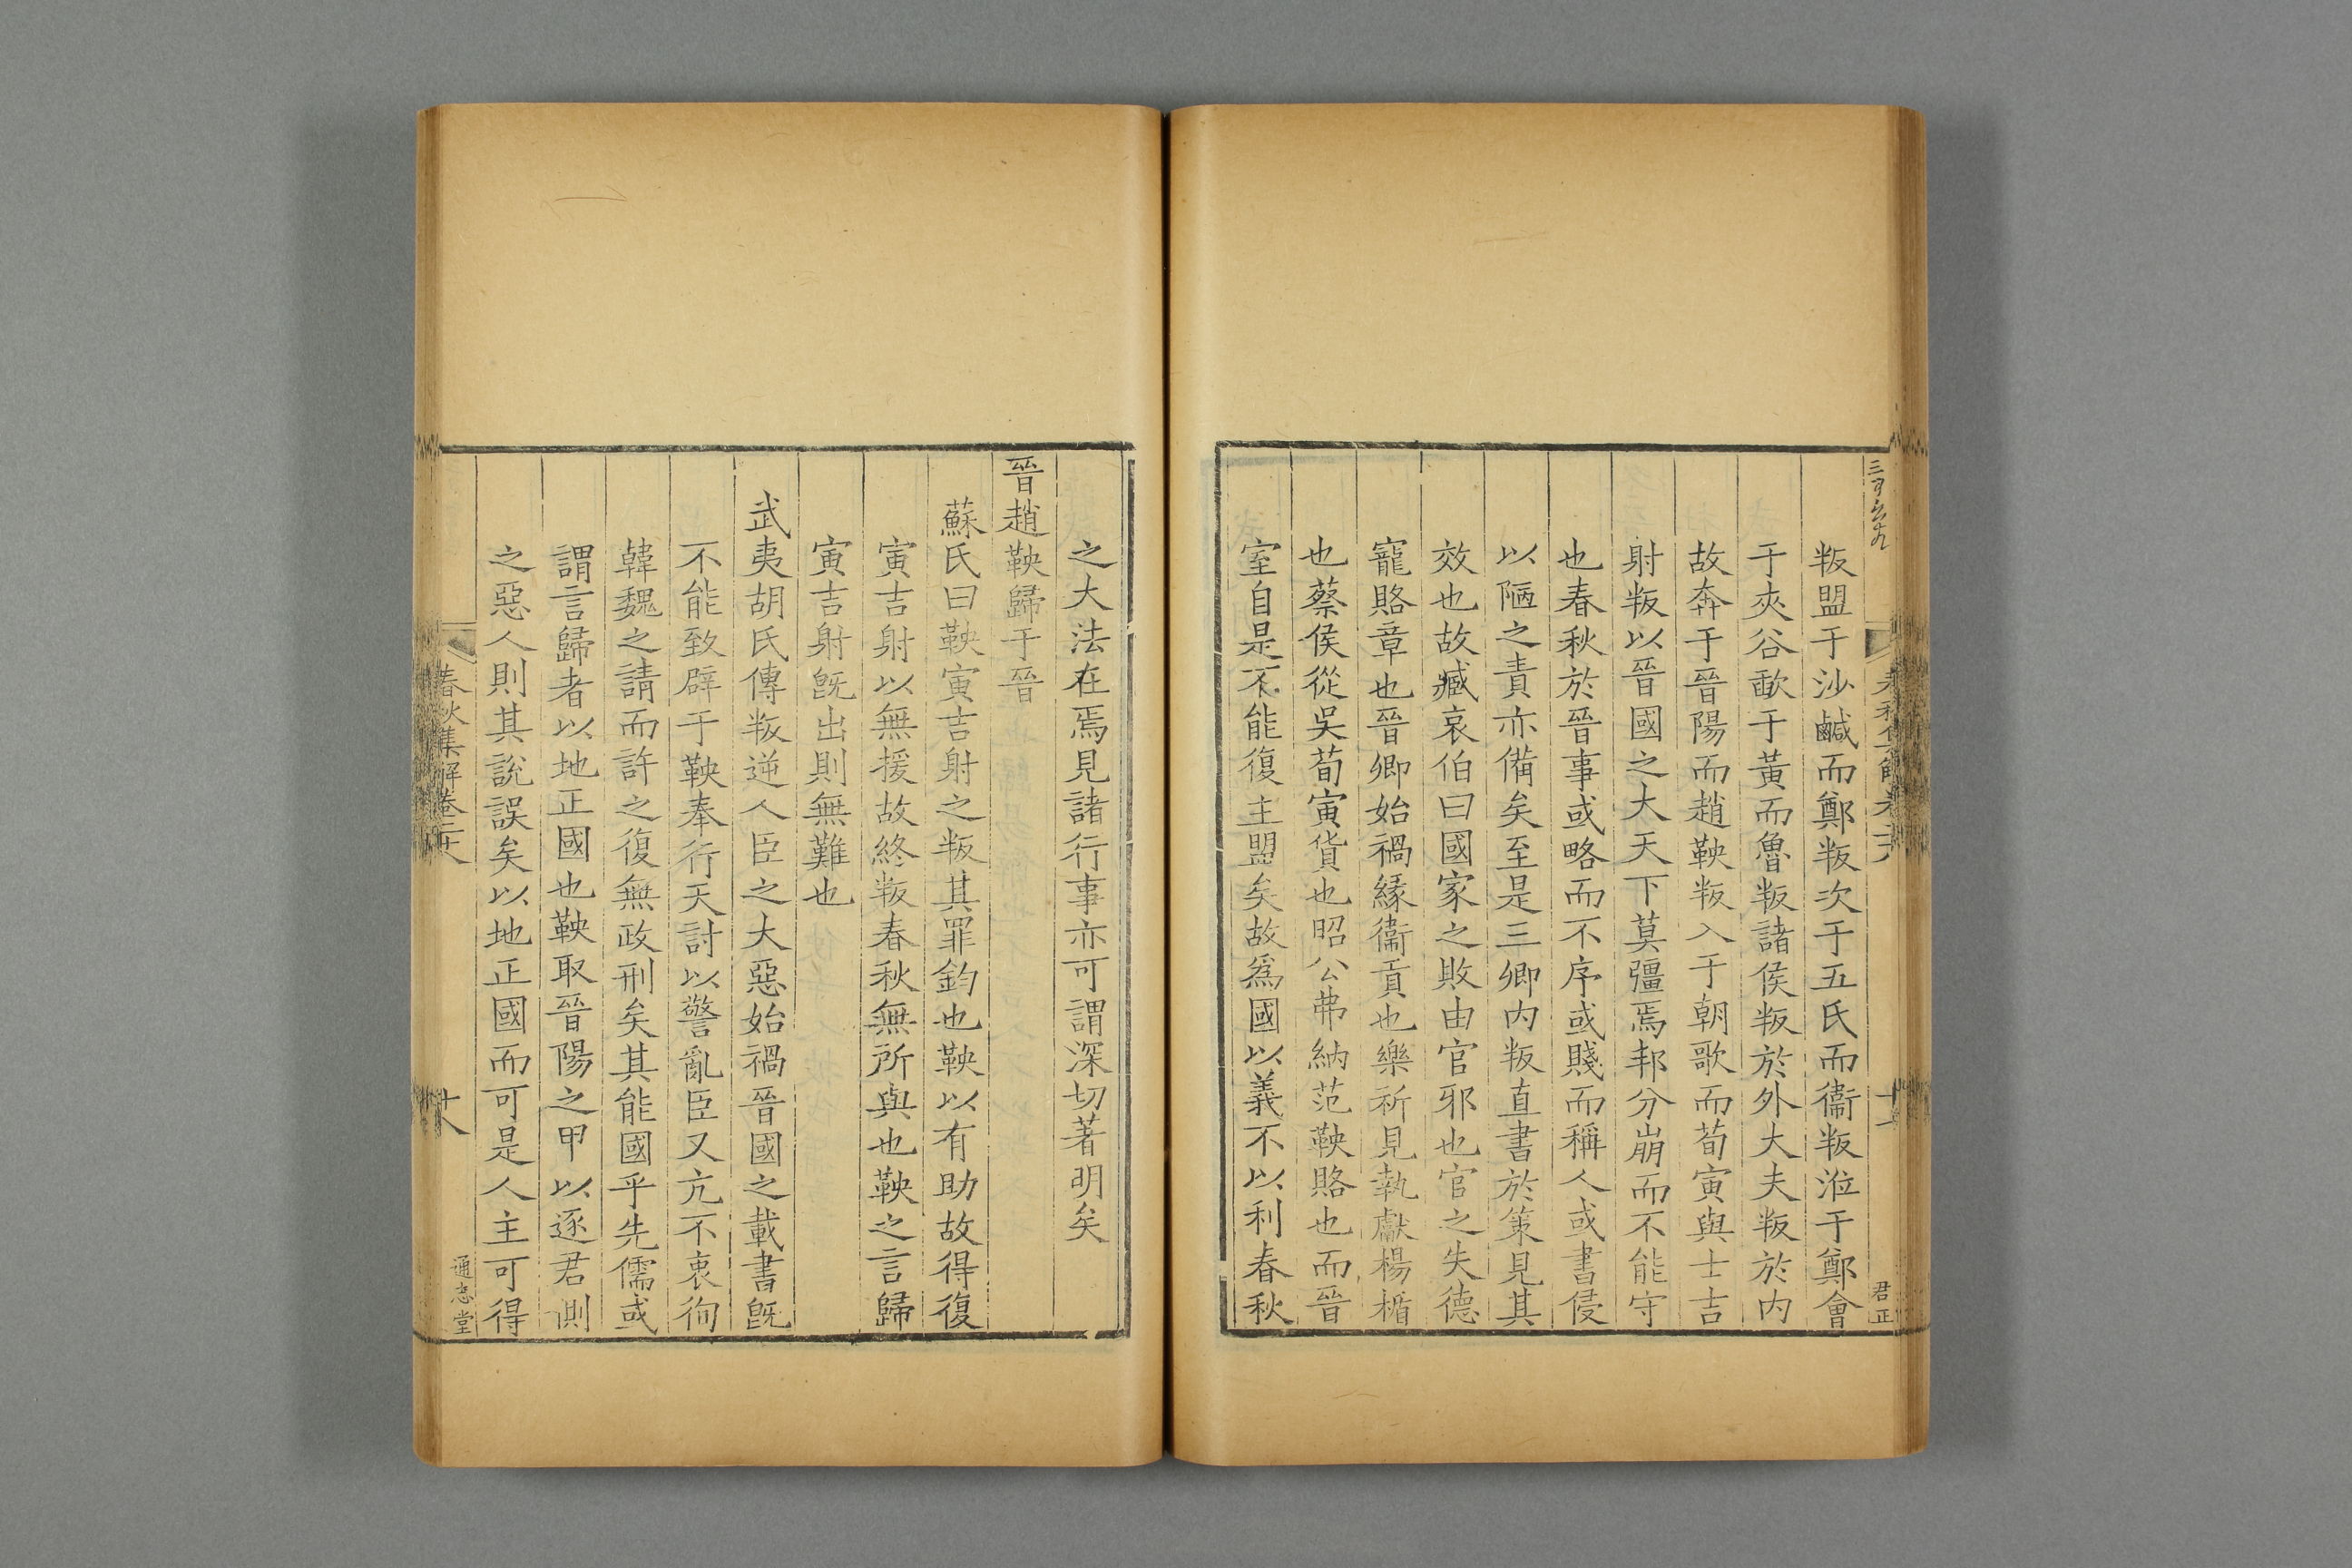 叛盟于沙鹹而鄭叛次于五氏而衞叛涖于鄭會
于夾谷歃于黃而魯叛諸侯叛於外大夫叛於内
故奔于晉陽而趙鞅叛入于朝歌而荀寅與士吉
射叛以晉國之大天下莫彊焉邦分崩而不能守
也春秋於晉事或略而不序或賤而稱人或書侵
以陋之責亦備矣至是三卿内叛直書於策見其
效也故臧哀伯曰國家之敗由官邪也官之失德
寵賂章也晉卿始禍緣衞貢也樂祁見執獻楊楯
也蔡侯從吳荀寅貨也昭公弗納范鞅賂也而晉
室自是不能復主盟矣故爲國以義不以利春秋
君正
之大法在焉見諸行事亦可謂深切著明矣
晉趙鞅歸于晉
蘇氏曰鞅寅吉射之叛其罪鈞也鞅以有助故得復
寅吉射以無援故終叛春秋無所與也鞅之言歸
寅吉射旣出則無難也
武夷胡氏傳叛逆人臣之大惡始禍晉國之載書旣
不能致辟于鞅奉行天討以警亂臣又亢不衷徇
韓魏之請而許之復無政刑矣其能國乎先儒或
謂言歸者以地正國也鞅取晉陽之甲以逐君側
之惡人則其說誤矣以地正國而可是人主可得
春秋集解卷二十八
十八
通志堂